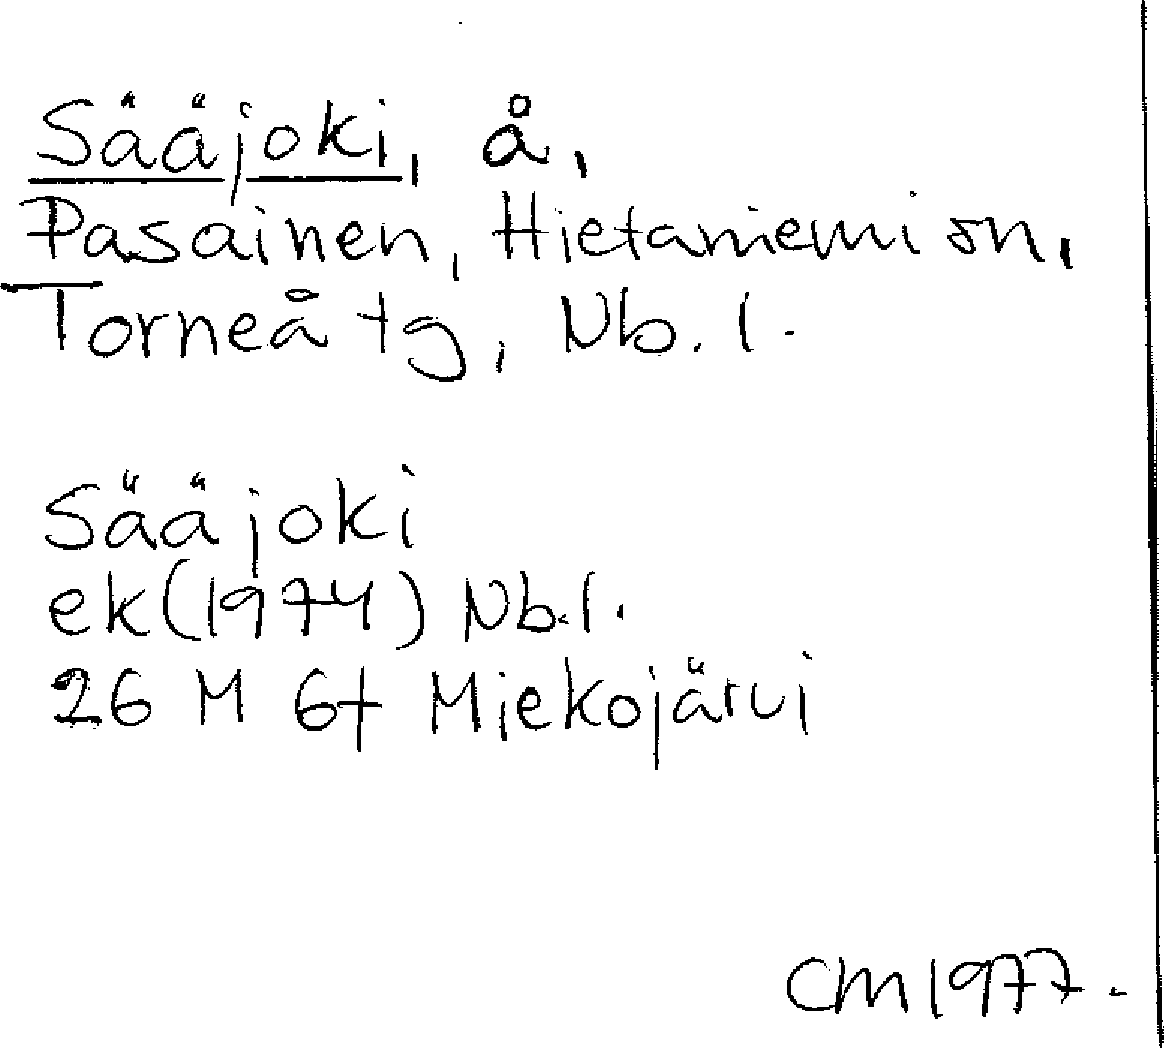 Sääjoki, å,
Pasainen, Hietaniemi sn,
Torneå tg, Nb. l.
Sääjoki
ek (1974) Nb.l.
26 M 6f Miekojärvi
CM 1977.